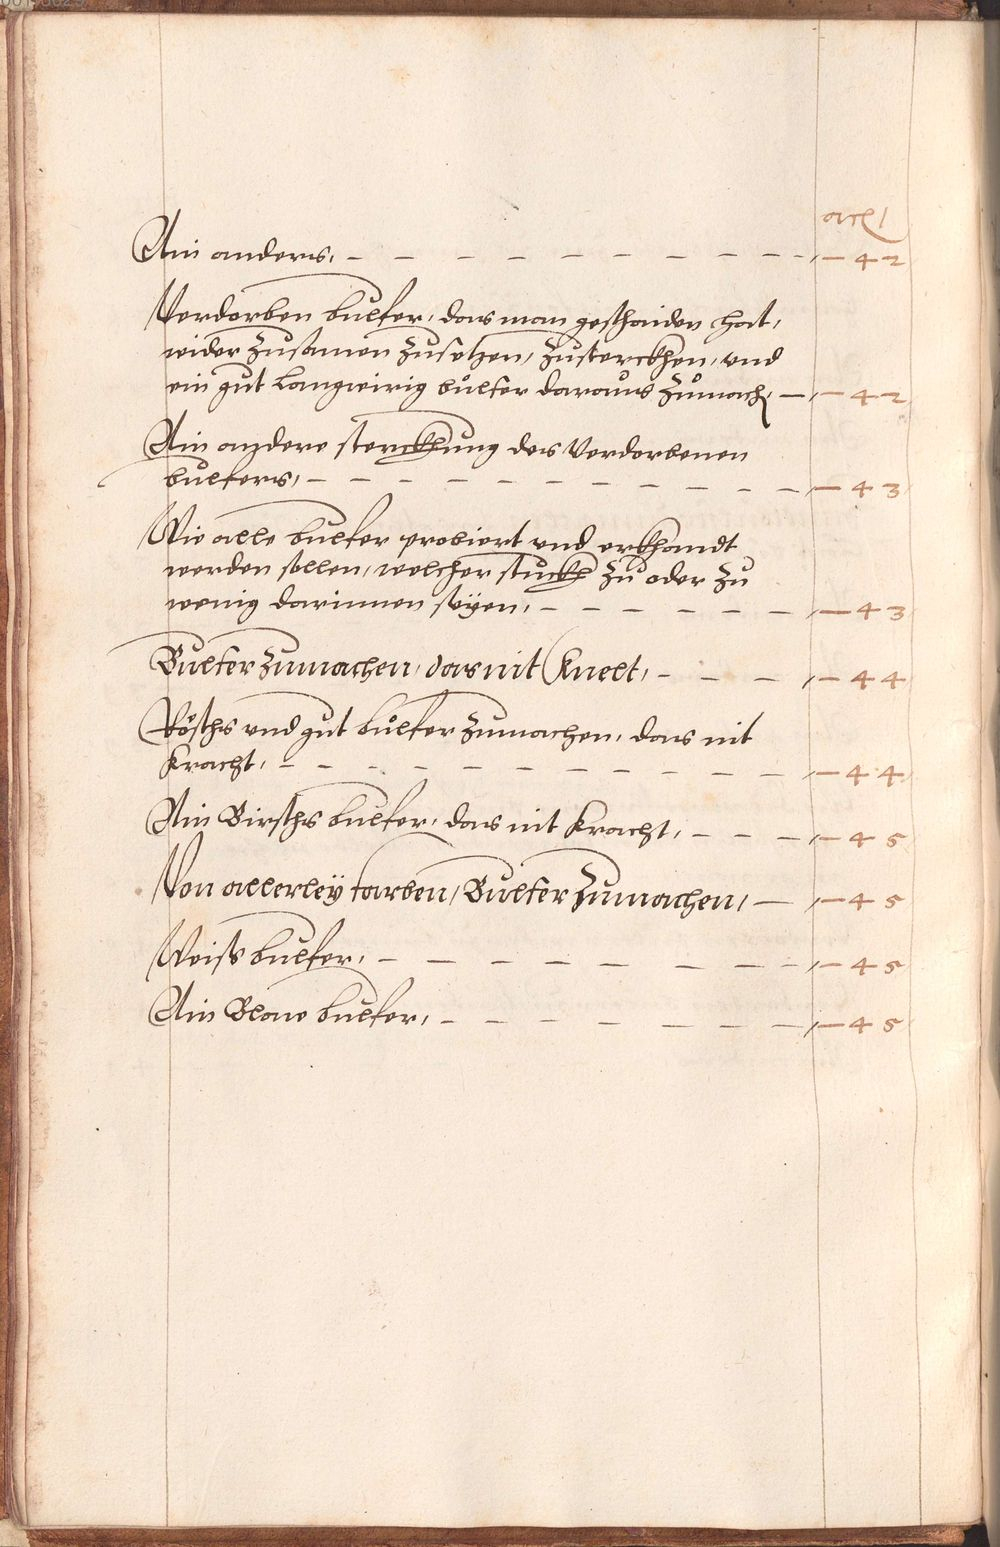 arch
Ain anders, — — — — — — — — — — 42
Verdorben bulfer, das man geschaiden hat,
wider zusamen zusetzen, zusterckhen, und
ein gut langwirig bulfer daraus zůmach, — 42
Ain andere sterckhung des verdorbenen
bulfers, — — — — — — — — — — 43
Wie alle bulfer probiert und erkhandt
werden sollen, welcher stuckh zů oder zů
wenig darinnen seyen, — — — — — — 43
Bulfer zumachen, das nit Knelt, — — — 44
Röschs und gut bulfer zumachen, das nit
kracht, — — — — — — — — — — — 44
Ain Birschs bulfer, das nit kracht, — — — 45
Von allerleÿ farben, Bulfer zumachen, — 45
Weiss bulfer, — — — — — — — — 45
Ain Blaw bulfer, — — — — — — — 45